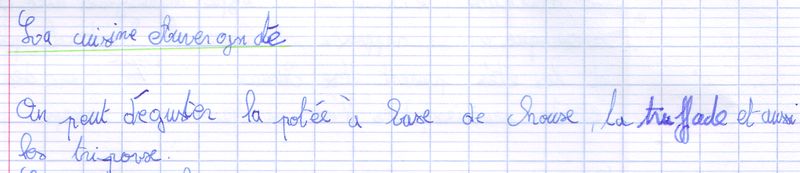 La cuisine Auvergnate
On peut déguster la potée à base de chouse, la truffade et aussi
les tripouse.